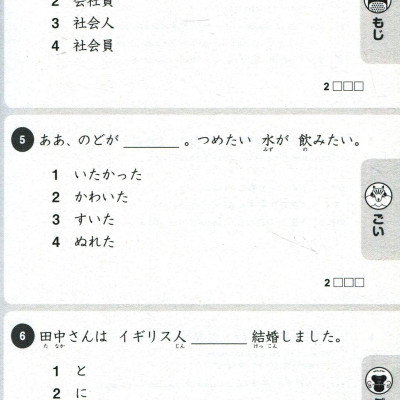 2 会社員
3 社会人
4 社会員
もじ
2□□□
5 ああ、のどが ______ 。つめたい 水が 飲みたい。
みず の
1 いたかった
2 かわいた
3 すいた
4 ぬれた
ごい
2□□□
6 田中さんは イギリス人 ______ 結婚しました。
た なか じん けっ こん
1 と
2 に